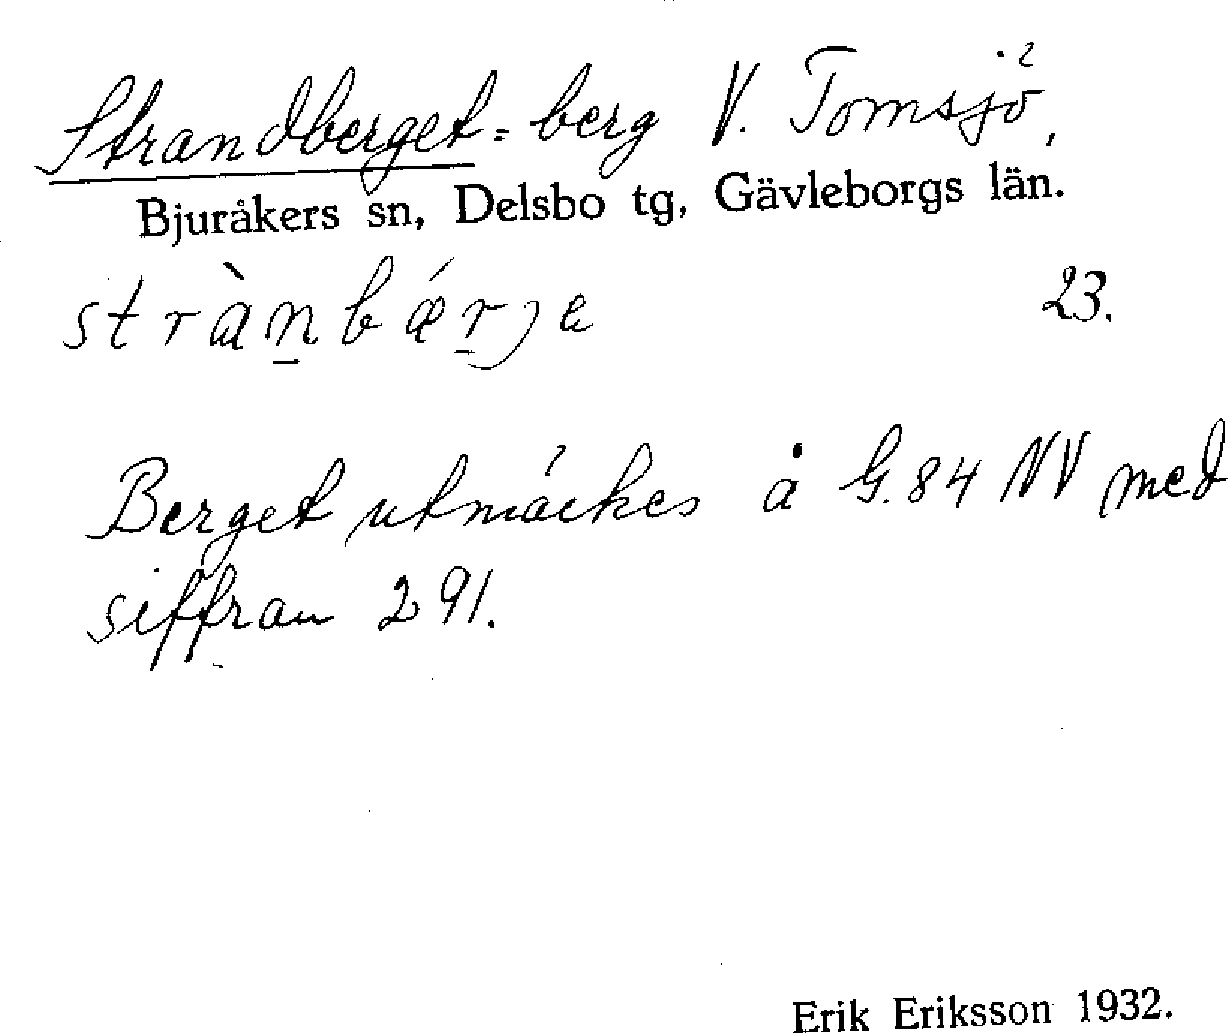 Strandberget = berg V. Tomsjö,
Bjuråkers sn, Delsbo tg, Gävleborgs län.
stràn̲bǽr̲je 23.
Berget utmärkes å G. 84 NV med
siffran 291.
Erik Eriksson 1932.